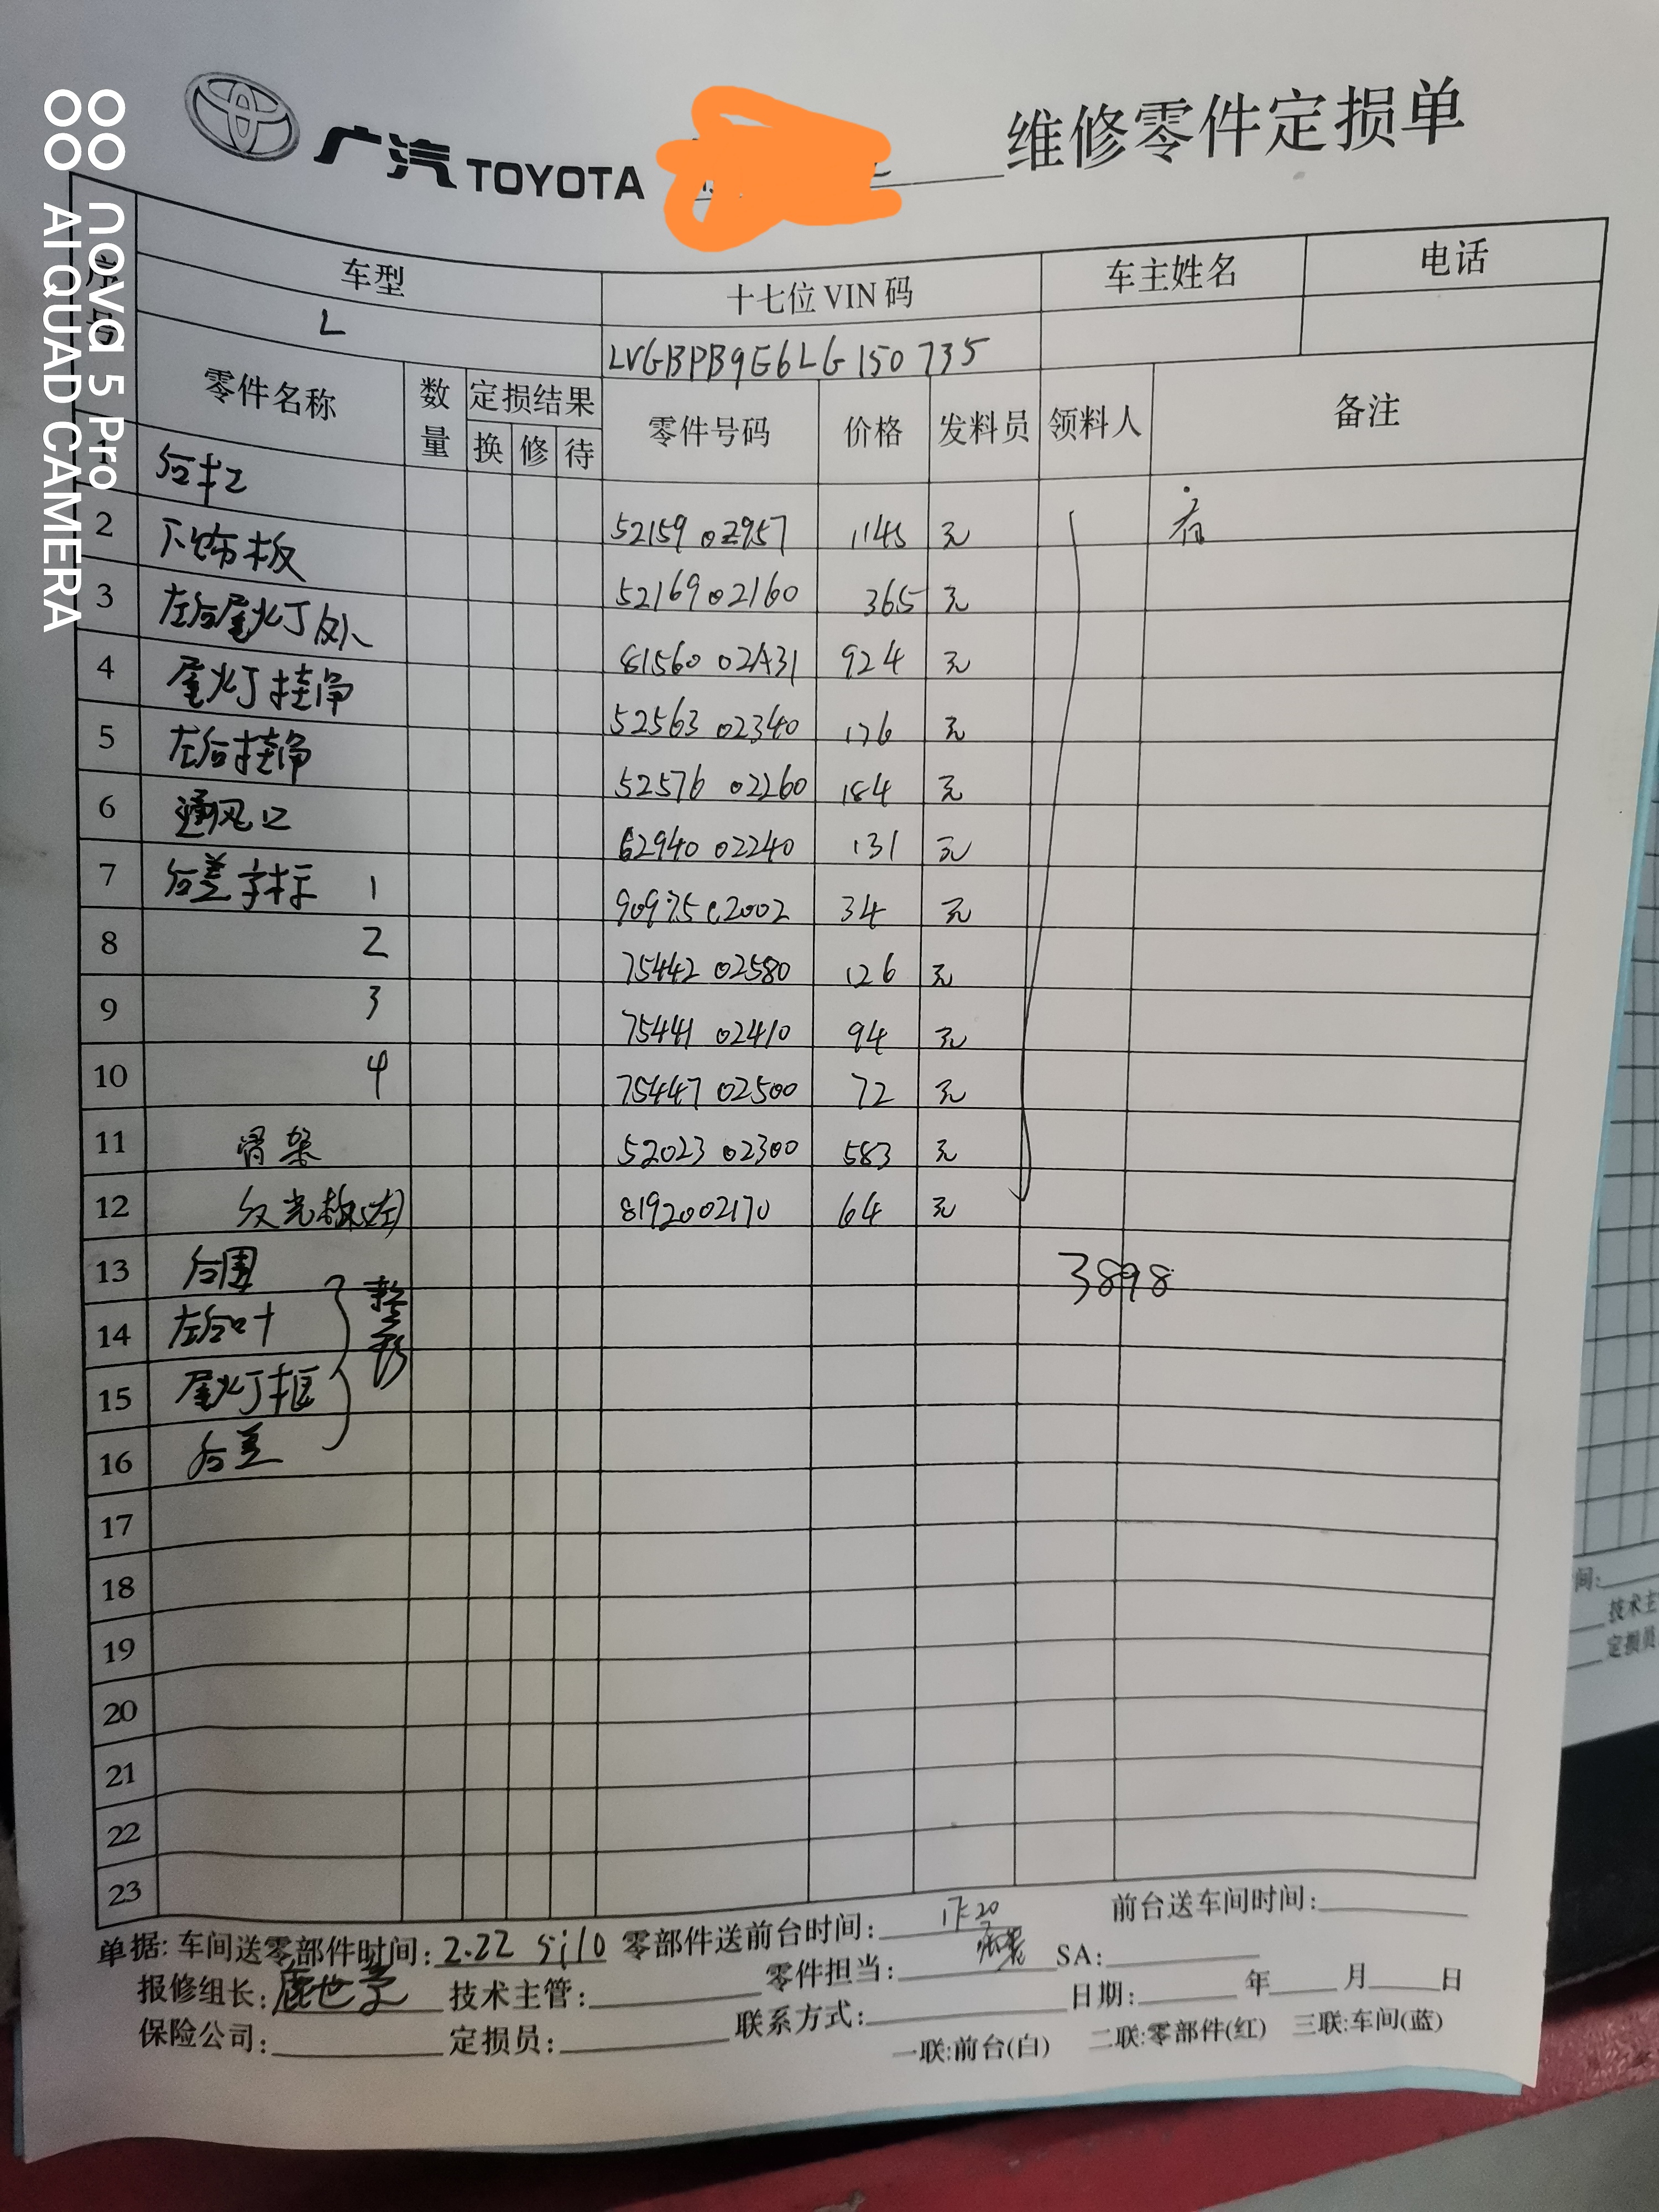 广汽 TOYOTA 维修零件定损单
序号 车型 十七位 VIN 码 车主姓名 电话
L LVGBPB9E6LG150735
零件名称 数量 定损结果 零件号码 价格 发料员 领料人 备注
换 修 待
1 后杠 52159 02957 1145 元
2 下饰板 52169 02160 365 元
3 左后尾灯(外) 81560 02A31 924 元
4 尾灯挂净 52563 02340 176 元
5 左后挂净 52576 02260 184 元
6 通风口 62940 02240 131 元
7 后盖字标 1 90975 02002 34 元
8 2 75442 02580 126 元
9 3 75441 02410 94 元
10 4 75447 02500 72 元
11 骨架 52023 02300 583 元
12 反光板(左) 8192002170 64 元
13 后围 3898
14 左后叶 整形
15 尾灯框
16 后盖
17
18
19
20
21
22
23
单据: 车间送零部件时间: 2.22 零部件送前台时间: 前台送车间时间:
报修组长: 技术主管: 零件担当: SA:
保险公司: 定损员: 联系方式: 日期: 年 月 日
一联:前台(白) 二联:零部件(红) 三联:车间(蓝)
nova 5 Pro
AI QUAD CAMERA
间:
技术主
定损员